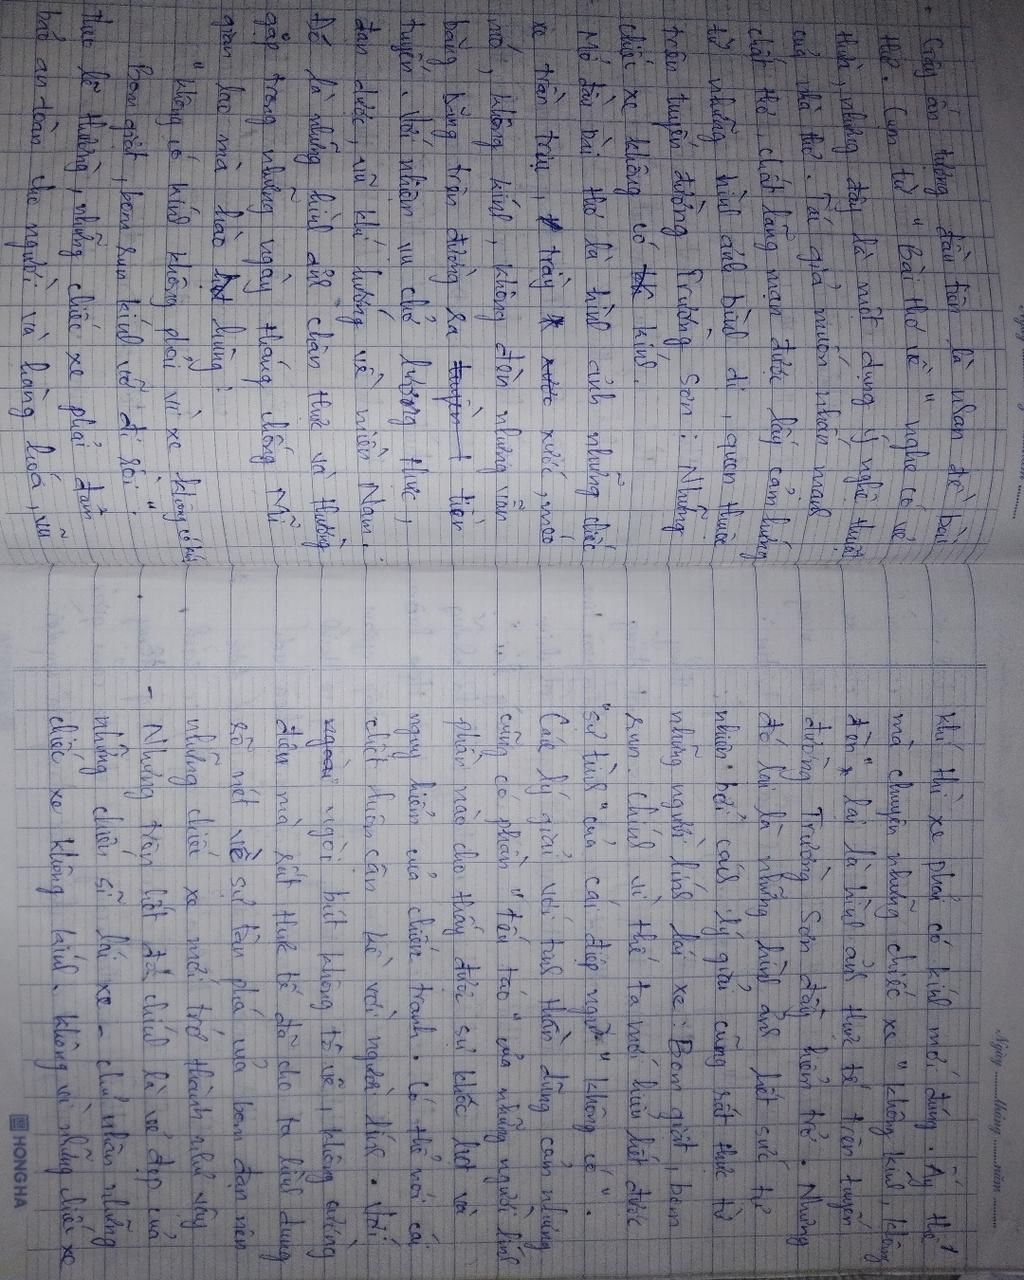 Gây ấn tượng đầu tiên là nhan đề bài
thơ. Cụm từ " Bài thơ về " nghe có vẻ
thừa, nhưng đây là một dụng ý nghệ thuật
của nhà thơ. Tác giả muốn nhấn mạnh
chất thơ, chất lãng mạn được lấy cảm hứng
từ những hình ảnh bình dị, quen thuộc
trên tuyến đường Trường Sơn: Những
chiếc xe không có kính.
Mở đầu bài thơ là hình ảnh những chiếc
xe trần trụi, trầy xước, méo
mó, không kính, không đèn nhưng vẫn
băng băng trên đường ra tiền
tuyến. Với nhiệm vụ chở lương thực,
đạn dược, vũ khí hướng về miền Nam.
Đó là những hình ảnh chân thực và thường
gặp trong những ngày tháng chống Mĩ
gian lao mà hào hùng!
"Không có kính không phải vì xe không có kính
Bom giật, bom rung kính vỡ đi rồi".
Theo lẽ thường, những chiếc xe phải đảm
bảo an toàn cho người và hàng hoá, vũ
khí thì xe phải có kính mới đúng. Ấy thế
mà chuyện những chiếc xe "không kính, không
đèn" lại là hình ảnh thực tế trên tuyến
đường Trường Sơn đầy hiểm trở. Những
đó lại là những hình ảnh hết sức tự
nhiên bởi cách lý giải cũng rất thực từ
những người lính lái xe: Bom giật, bom
rung. Chính vì thế ta mới hiểu hết được
"sự tình" của cái điệp ngữ " không có ".
Cách lý giải với tinh thần dũng cảm nhưng
cũng có phần "tếu táo" của những người lính
phần nào cho thấy được sự khốc liệt và
nguy hiểm của chiến tranh. Có thể nói cái
chết luôn cận kề với người lính. Với
ngòi bút không tô vẽ, không cường
điệu mà rất thực tế đã cho ta hình dung
rõ nét về sự tàn phá của bom đạn nên
những chiếc xe mới trở thành như vậy
- Nhưng trên hết đó chính là vẻ đẹp của
những chiến sĩ lái xe - chủ nhân những
chiếc xe không kính. Không vì những chiếc xe
Ngày ........ tháng ........ năm ........
HONG HA